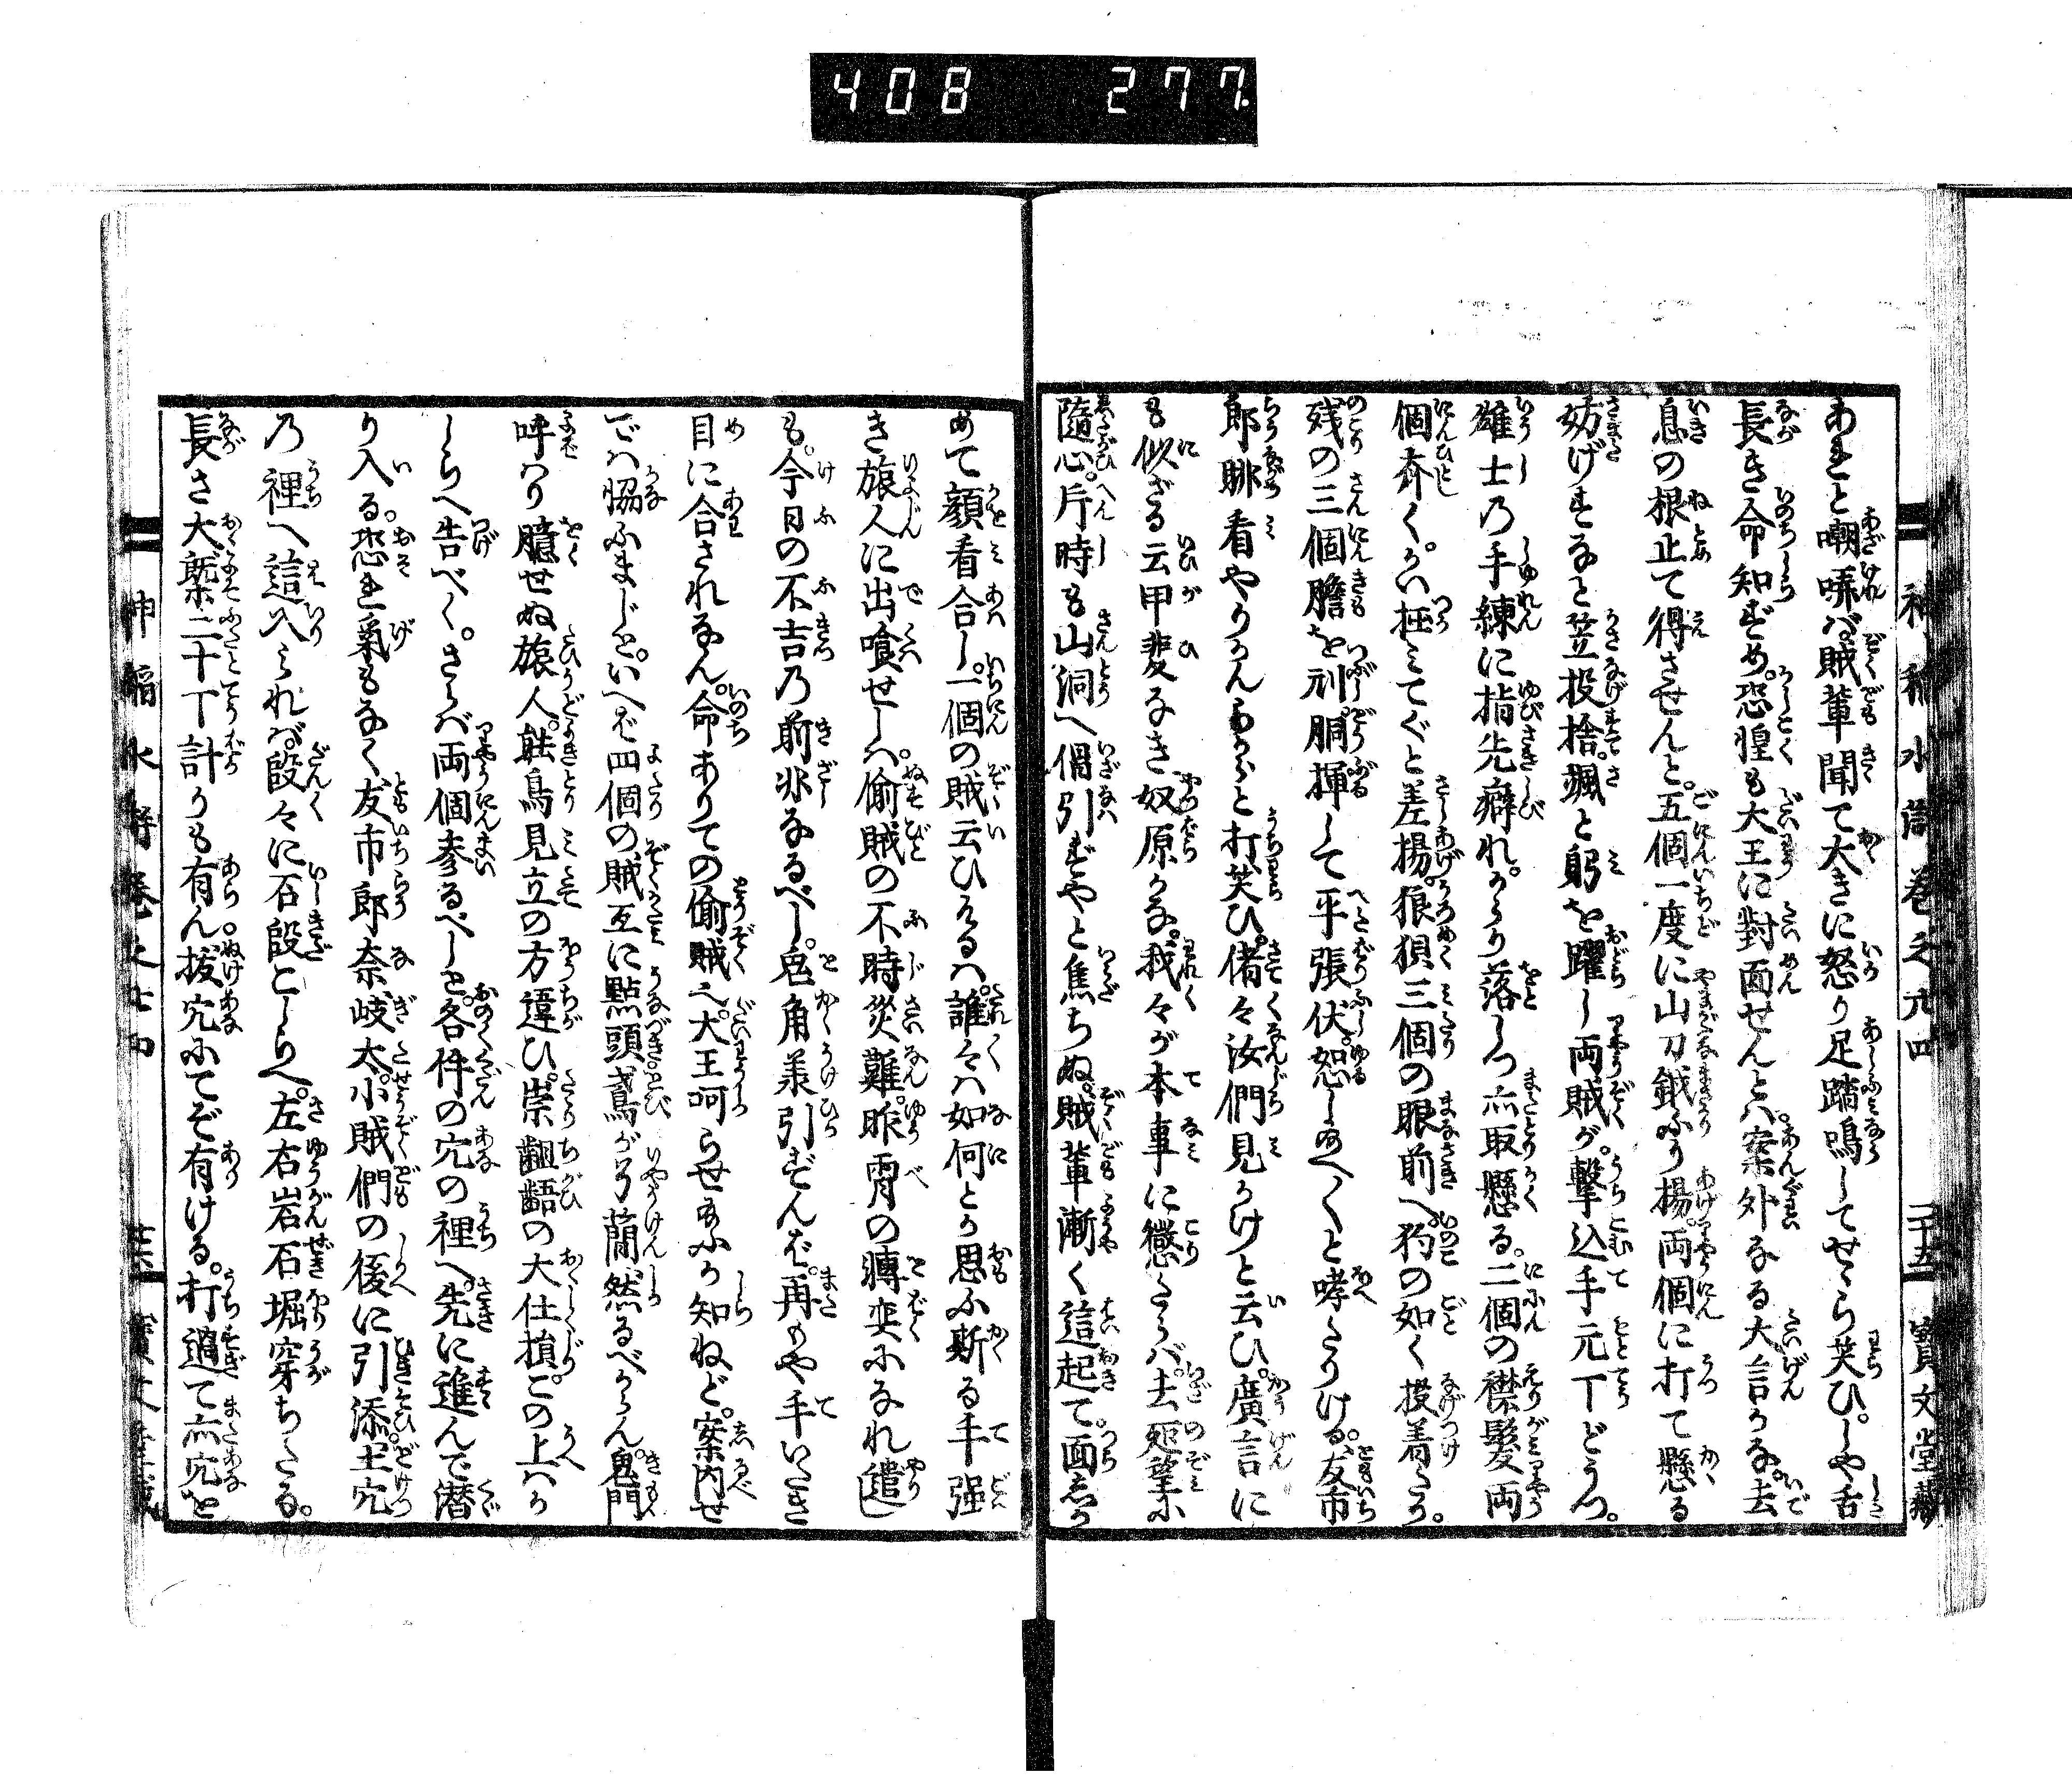 408 277.
神稲水滸傳巻之廿四 二十五 寳文堂藏
あれと嘲哢バ賊輩聞て大きに怒り足踏鳴してせゝら笑ひ。しや舌
長き命知ずめ。恐惶も大王に對面せんとハ。案外なる大言かな。去
息の根止て得させんと。五個一度に山刀鉞ふり揚。両個に打て懸る
妨げすなと笠投捨。颯と躬を躍し両賊が。撃込手元丁どうつ。
雄士乃手練に指先癖れ。からり落しつ亦取懸る。二個の襟髪両
個斉くかい抓ミてぐと差揚。狼狽三個の眼前へ。礫の如く投着たり。
残の三個膽を刓。胴揮して平張伏。恕しあへ〳〵と哮たりける。友市
郎眺看やりからからと打笑ひ。偖々汝們見かけと云ひ。廣言に
も似ざる云甲斐なき奴原かな。我々が本事に懲たらバ。去死望ふ
隨心。片時も山洞へ倡引ずやと焦ちぬ。賊輩漸く這起て。面しか
めて顔看合し。一個の賊云ひけるハ。誰々ハ如何とか思ふ斯る手強
き旅人に出喰せしハ。偷賊の不時災難。昨宵の博奕ふなれ遣し
も。今日の不吉乃前兆なるべし。兎角兼引ずんば。再もや手いたき
目に合されるん。命ありての偷賊ぞ。大王呵らせ給ふか知ねど。案内せ
でハ協ふまじと。いへば四個の賊互に點頭鳶が弓箭。然るべからん。鬼門
呼ハり臆せぬ旅人。能鳥見立の方違ひ。祟齟齬の大仕損。この上ハか
しらへ告べく。さらバ両個参るべしと。各件の穴の裡へ。先に進んで潜
り入る。恐れ氣もなく友市郎奈岐太。小賊們の後に引添。土穴
乃裡へ這入られバ。段々に石段こしらへ。左右岩石堀穿ちたる。
長さ大概二十丁計りも有ん。抜穴ふてぞ有ける。打過て亦穴を
神稲水滸傳巻之廿四